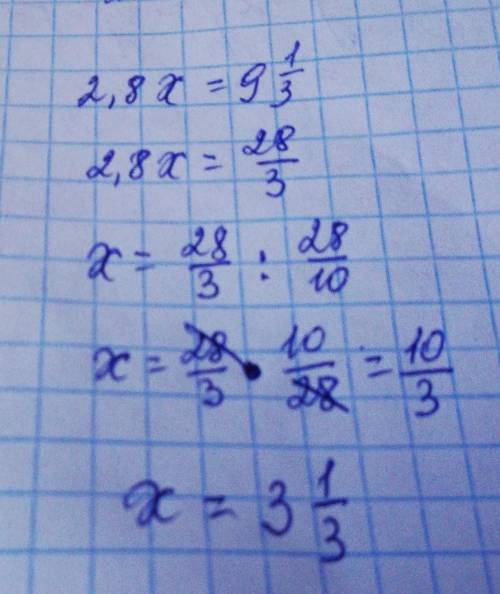 2,8x = 9 1/3
2,8x = 28/3
x = 28/3 : 28/10
x = 28/3 • 10/28 = 10/3
x = 3 1/3